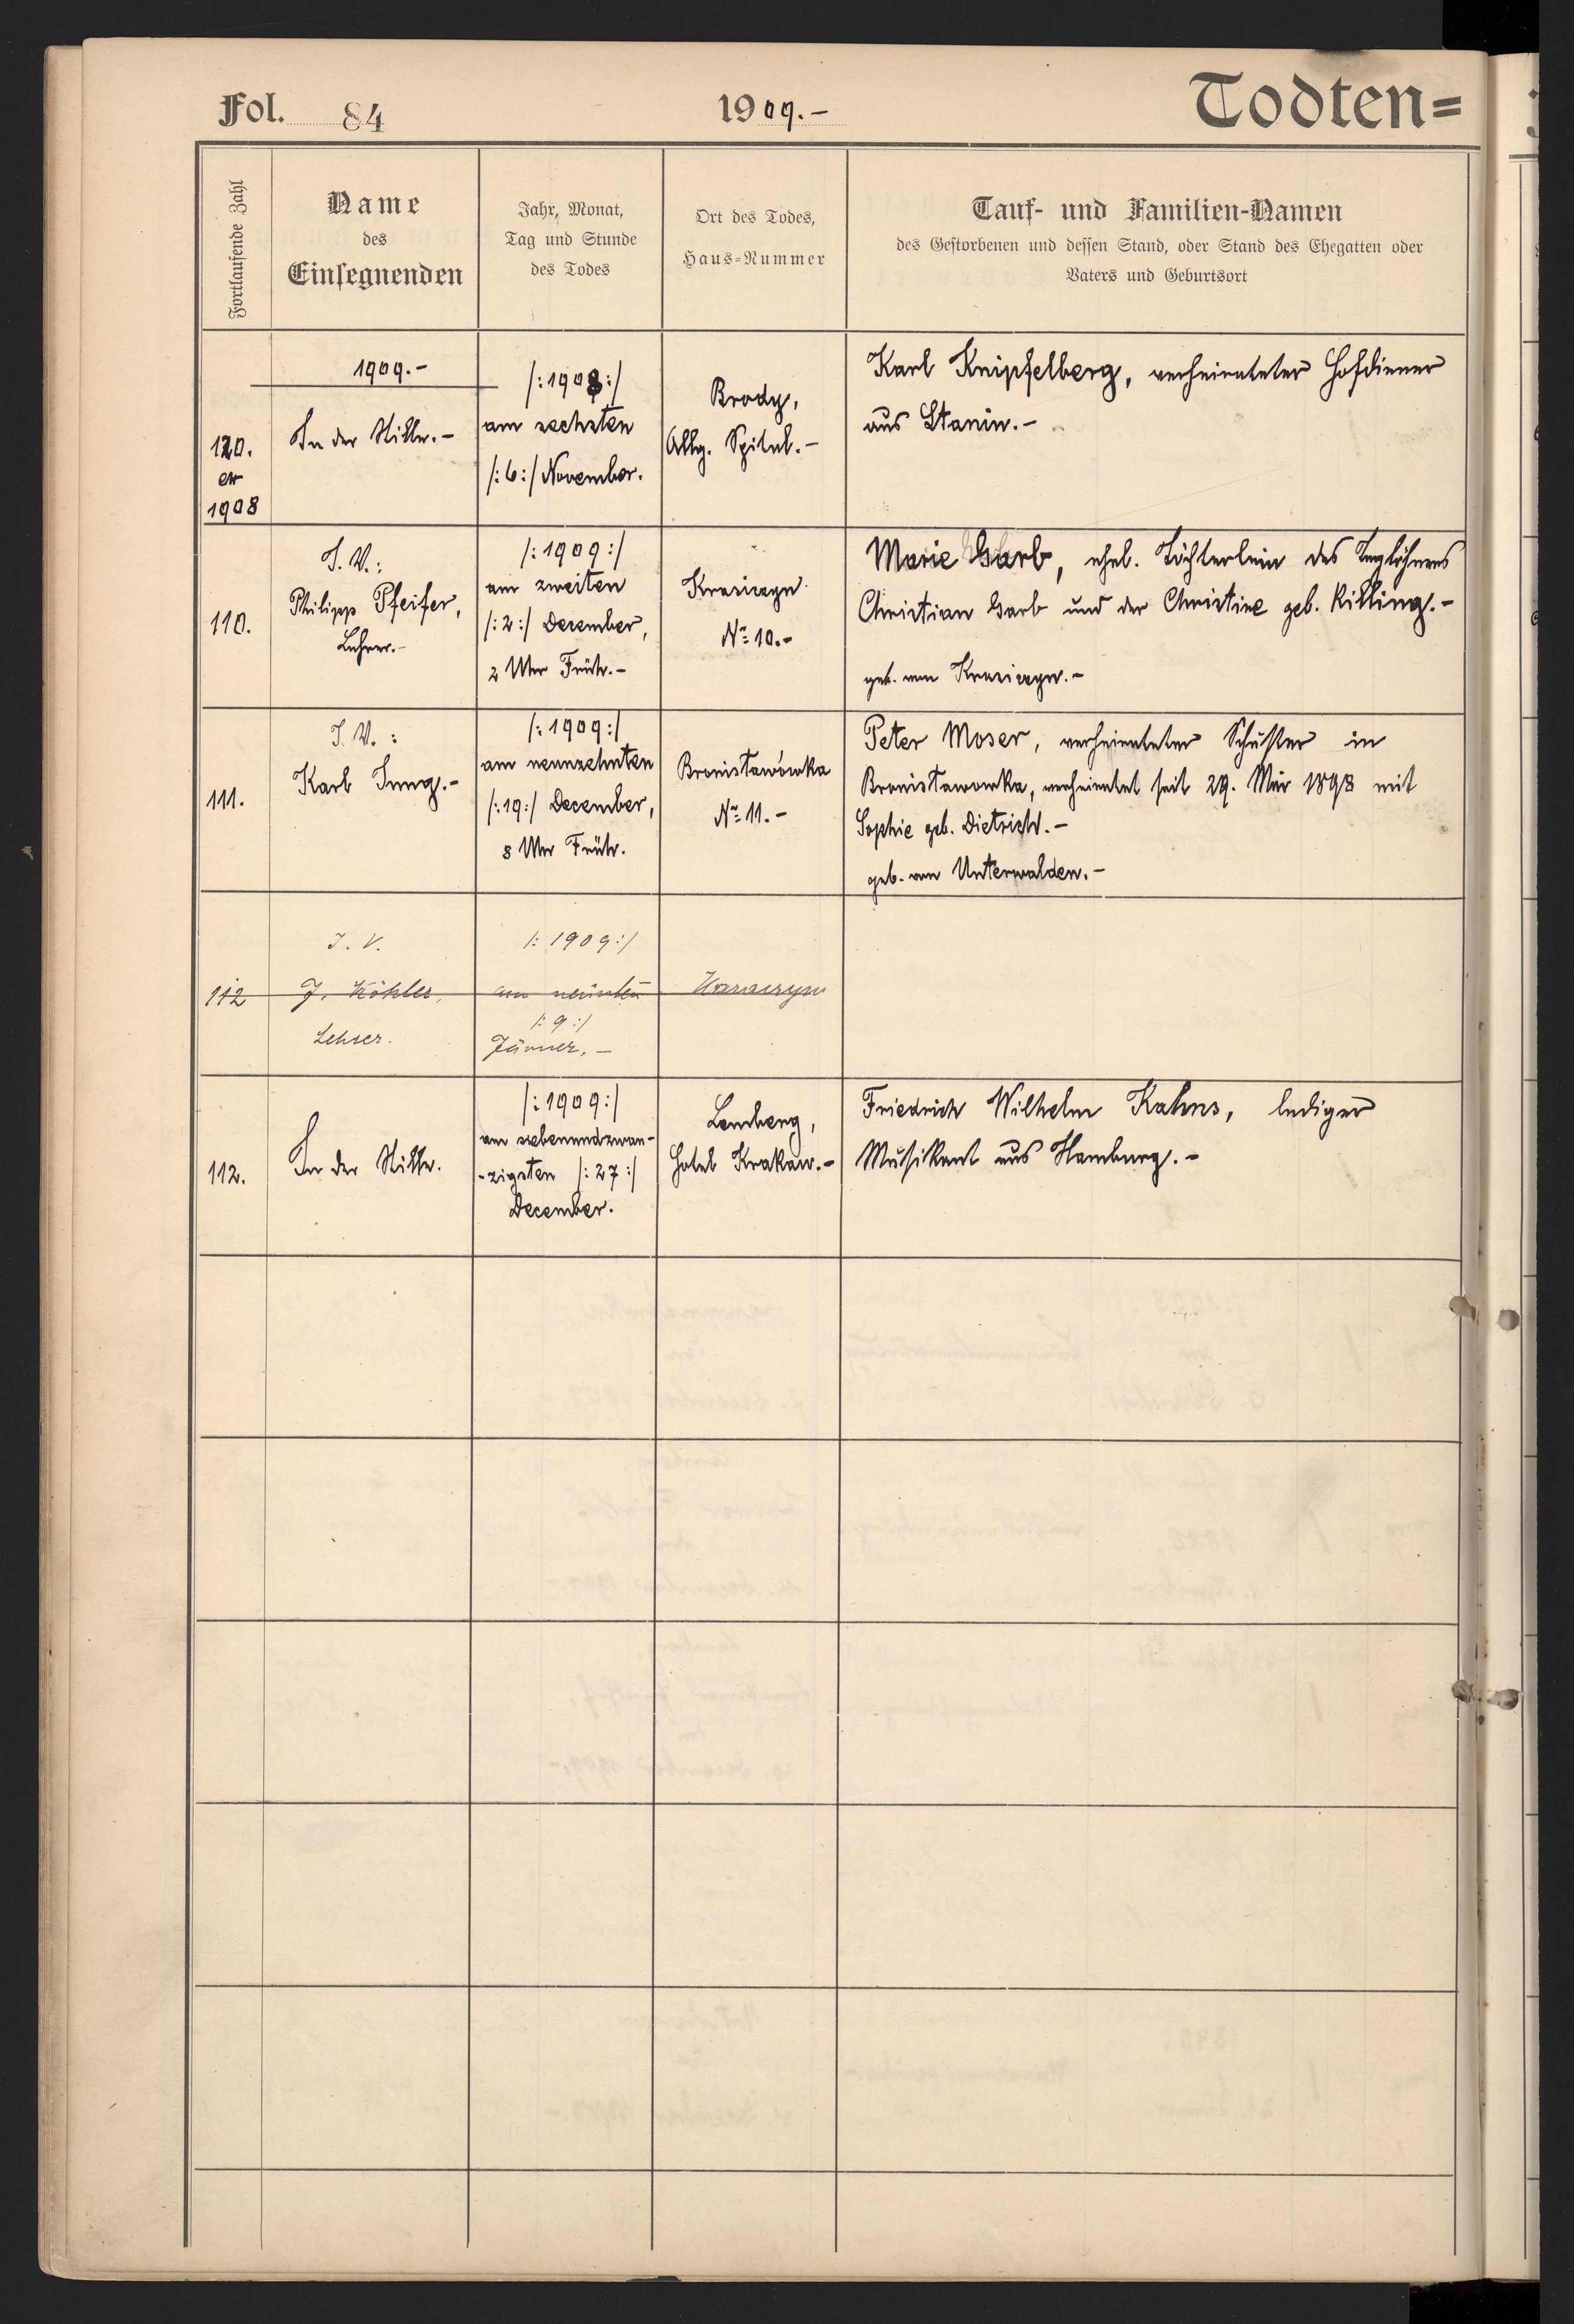 Fol. 84
1909.-
Todten=
Fortlaufende Zahl
Name
des
Einsegnenden
Jahr, Monat,
Tag und Stunde
des Todes
Ort des Todes,
Haus-Nummer
Tauf- und Familien-Namen
des Gestorbenen und dessen Stand, oder Stand des Ehegatten oder
Vaters und Geburtsort
120.
ex
1908
1909.-
In der Stille.-
/:1908:/
am sechsten
/:6:/ November.
Brody,
Allg. Spital.-
Karl Knipfelberg, verheirateter Hofdiener
aus Stanin.-
110.
I. V.:
Philipp Pfeifer,
Lehrer.-
/:1909:/
am zweiten
/:2:/ December,
2 Uhr Früh.-
Krasiczyn
No 10.-
Marie Garb, ehel. Töchterlein des Taglöhners
Christian Garb und der Christine geb. Killing.-
geb. von Krasiczyn.-
111.
I. V.:
Karl Jung.-
/:1909:/
am neunzehnten
/:19:/ December,
8 Uhr Früh.
Bronisławówka
No 11.-
Peter Moser, verheirateter Schuster in
Bronisławowka, verheiratet seit 29. Mär 1898 mit
Sophie geb. Dietrich.-
geb. von Unterwalden.-
112
I. V.
J. Köhler,
Lehrer.
/:1909:/
am neunten
/:9:/
Jänner.-
112.
In der Stille.
/:1909:/
am siebenundzwan-
-zigsten /:27:/
December.
Lemberg,
Hotel Krakau.-
Friedrich Wilhelm Kahns, lediger
Musikant aus Hamburg.-